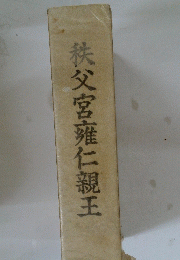 秩父宮雍仁親王